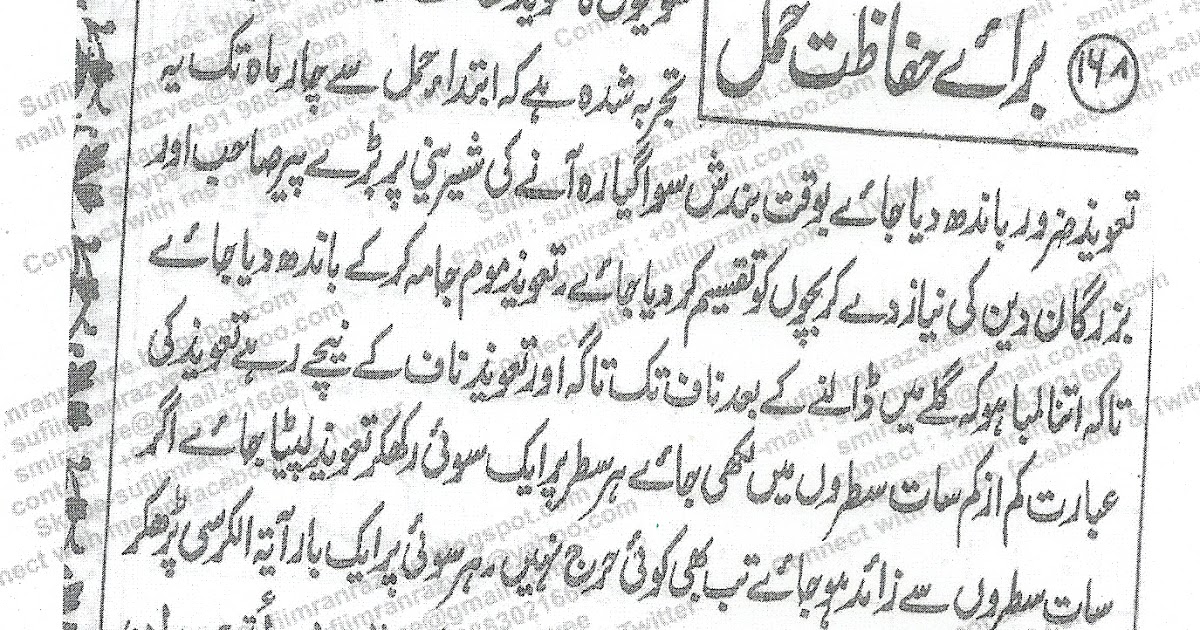 ۱۶۸ برائے حفاظت حمل
تجربہ شدہ ہے کہ ابتداء حمل سے چار ماہ تک یہ
تعویذ ضرور باندھ دیا جائے بوقت بندش سوا گیارہ آنے کی شیرینی پر بڑے پیر صاحب اور
بزرگان دین کی نیاز دے کر بچوں کو تقسیم کر دیا جائے، تعویذ موم جامہ کر کے باندھ دیا جائے
تاگہ اتنا لمبا ہو کہ گلے میں ڈالنے کے بعد ناف تک تاگہ اور تعویذ ناف کے نیچے رہے تعویذ کی
عبارت کم از کم سات سطروں میں لکھی جائے ہر سطر پر ایک سوئی رکھکر تعویذ لپیٹا جائے اگر
سات سطروں سے زائد ہو جائے تب بھی کوئی حرج نہیں، ہر سوئی پر ایک بار آیۃ الکرسی پڑھکر